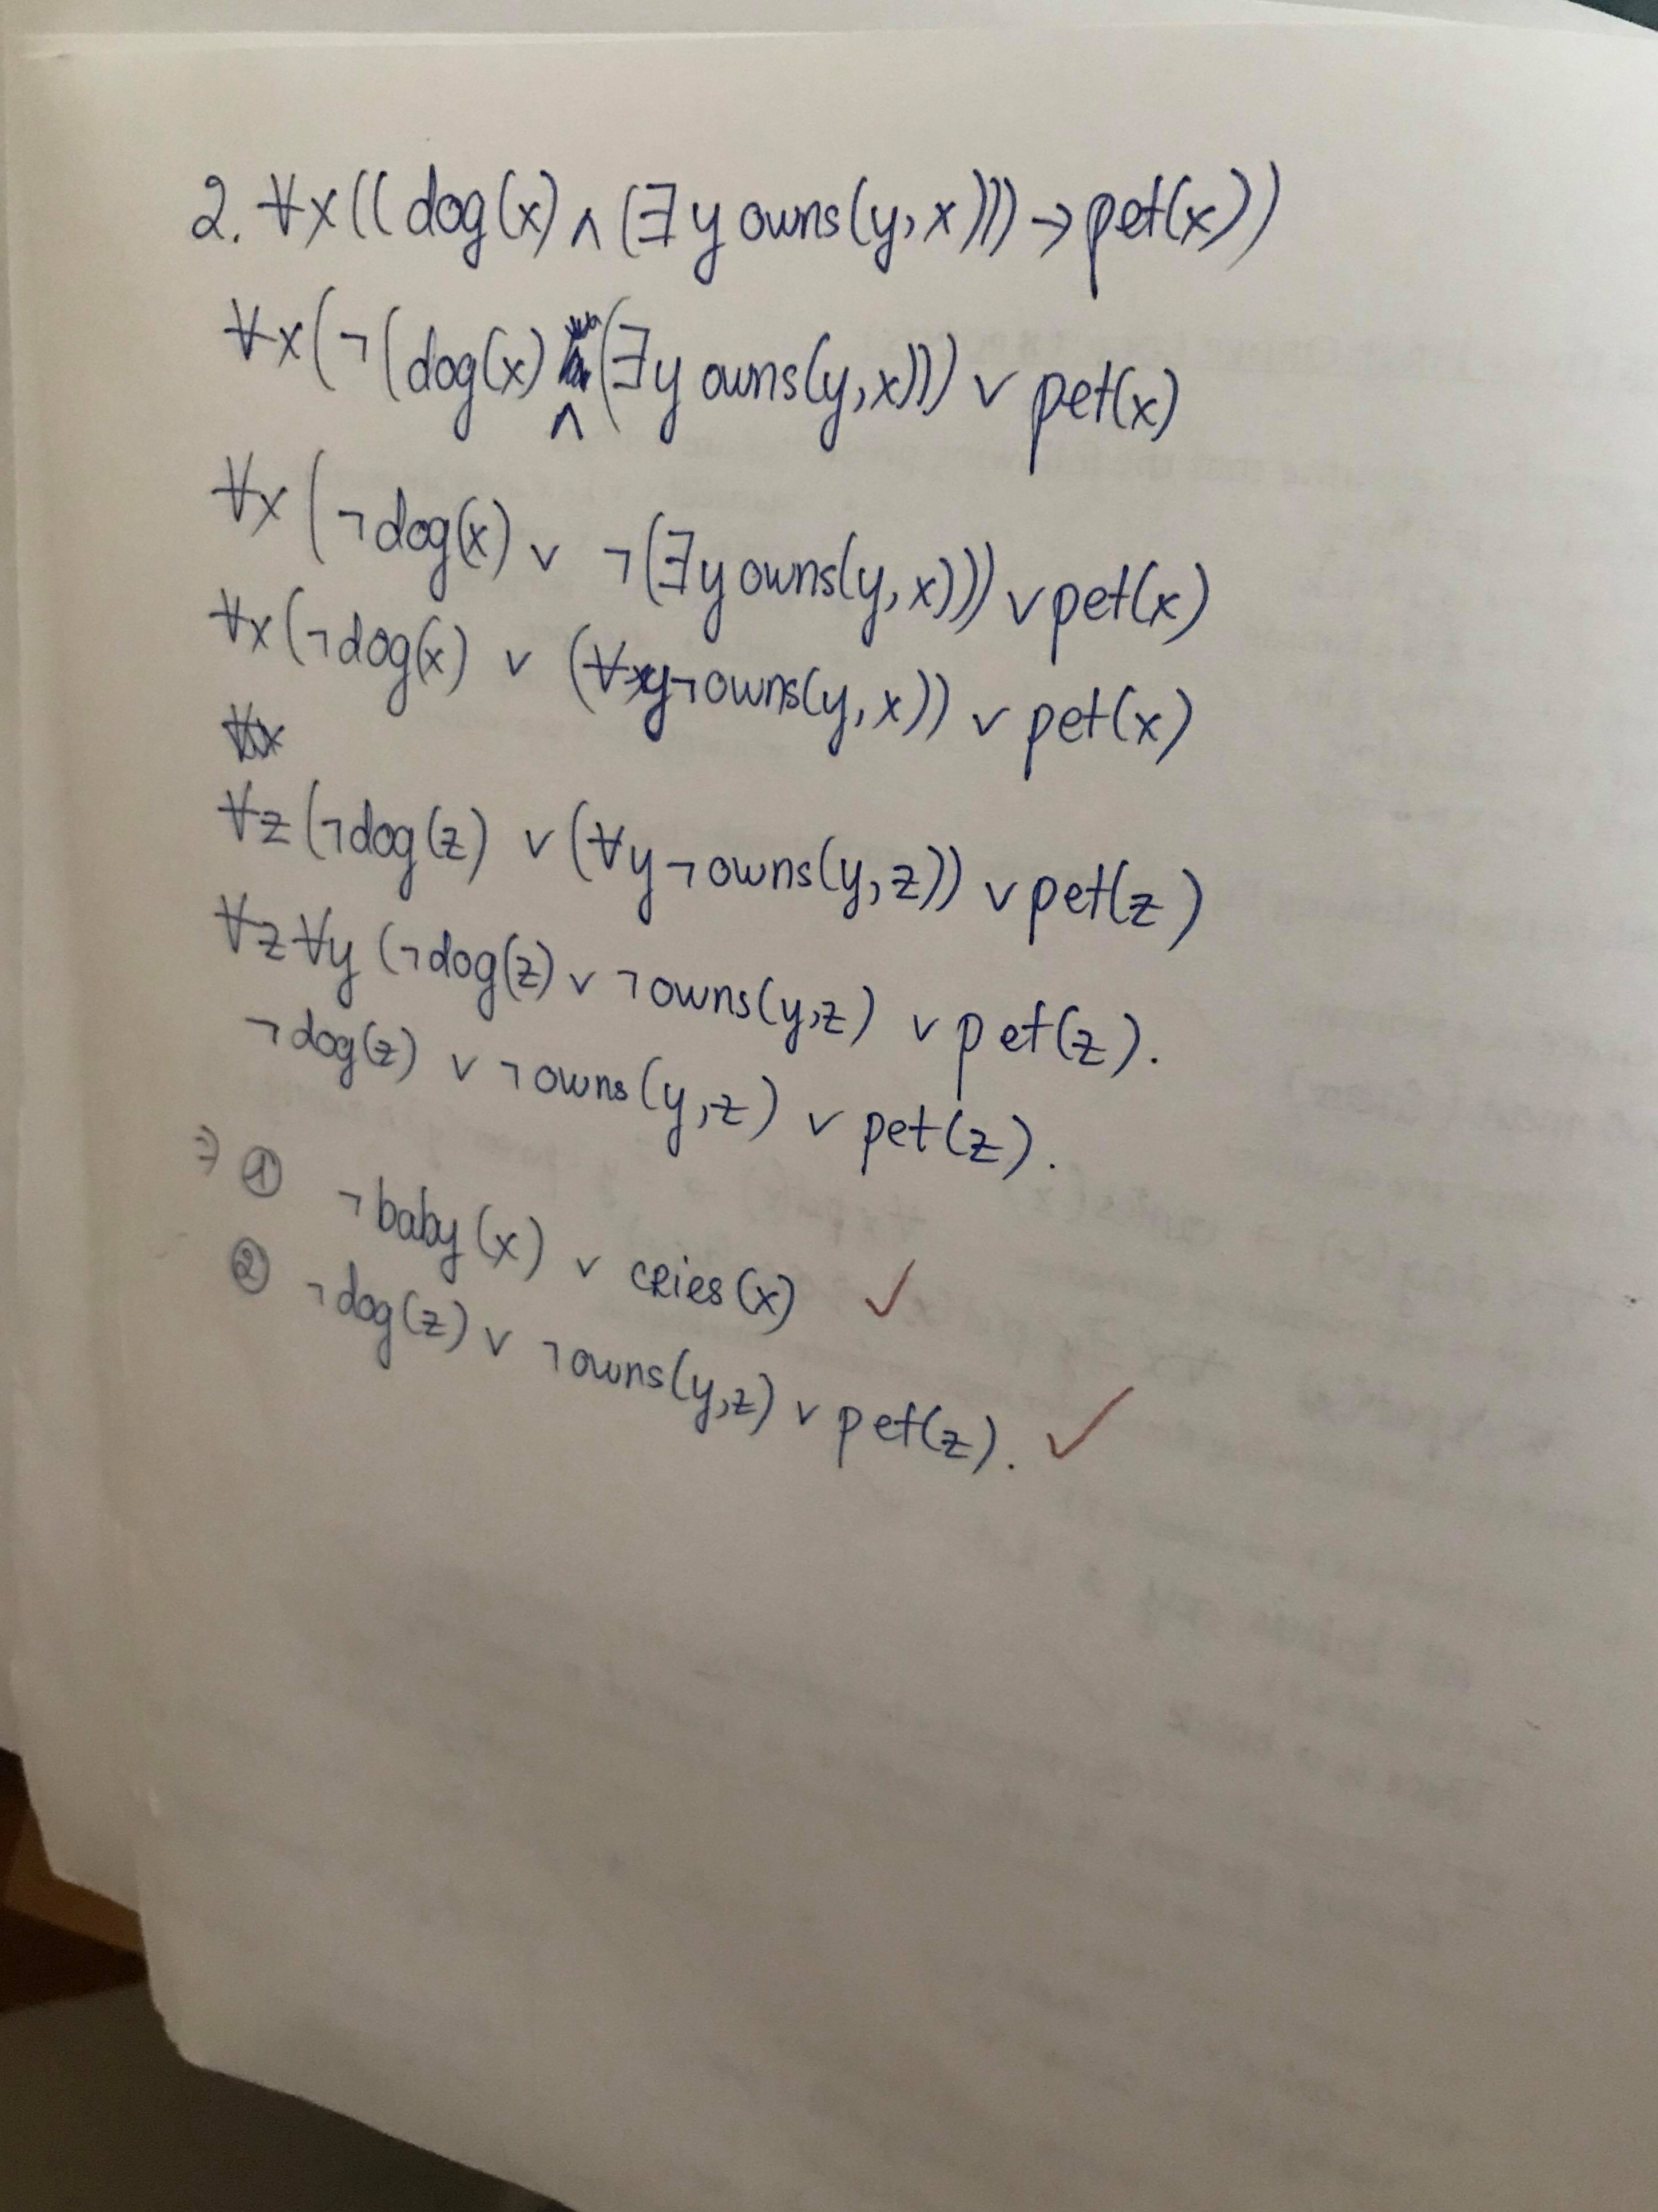 2. ∀x((dog(x) ∧ (∃y owns(y,x))) → pet(x))
∀x(¬(dog(x) ∧ (∃y owns(y,x))) ∨ pet(x)
∀x (¬dog(x) ∨ ¬(∃y owns(y,x))) ∨ pet(x)
∀x(¬dog(x) ∨ (∀y¬owns(y,x)) ∨ pet(x)
∀z(¬dog(z) ∨ (∀y¬owns(y,z)) ∨ pet(z)
∀z∀y (¬dog(z) ∨ ¬owns(y,z) ∨ pet(z).
¬dog(z) ∨ ¬owns(y,z) ∨ pet(z).
⇒ ① ¬baby(x) ∨ cries(x) ✓
② ¬dog(z) ∨ ¬owns(y,z) ∨ pet(z). ✓